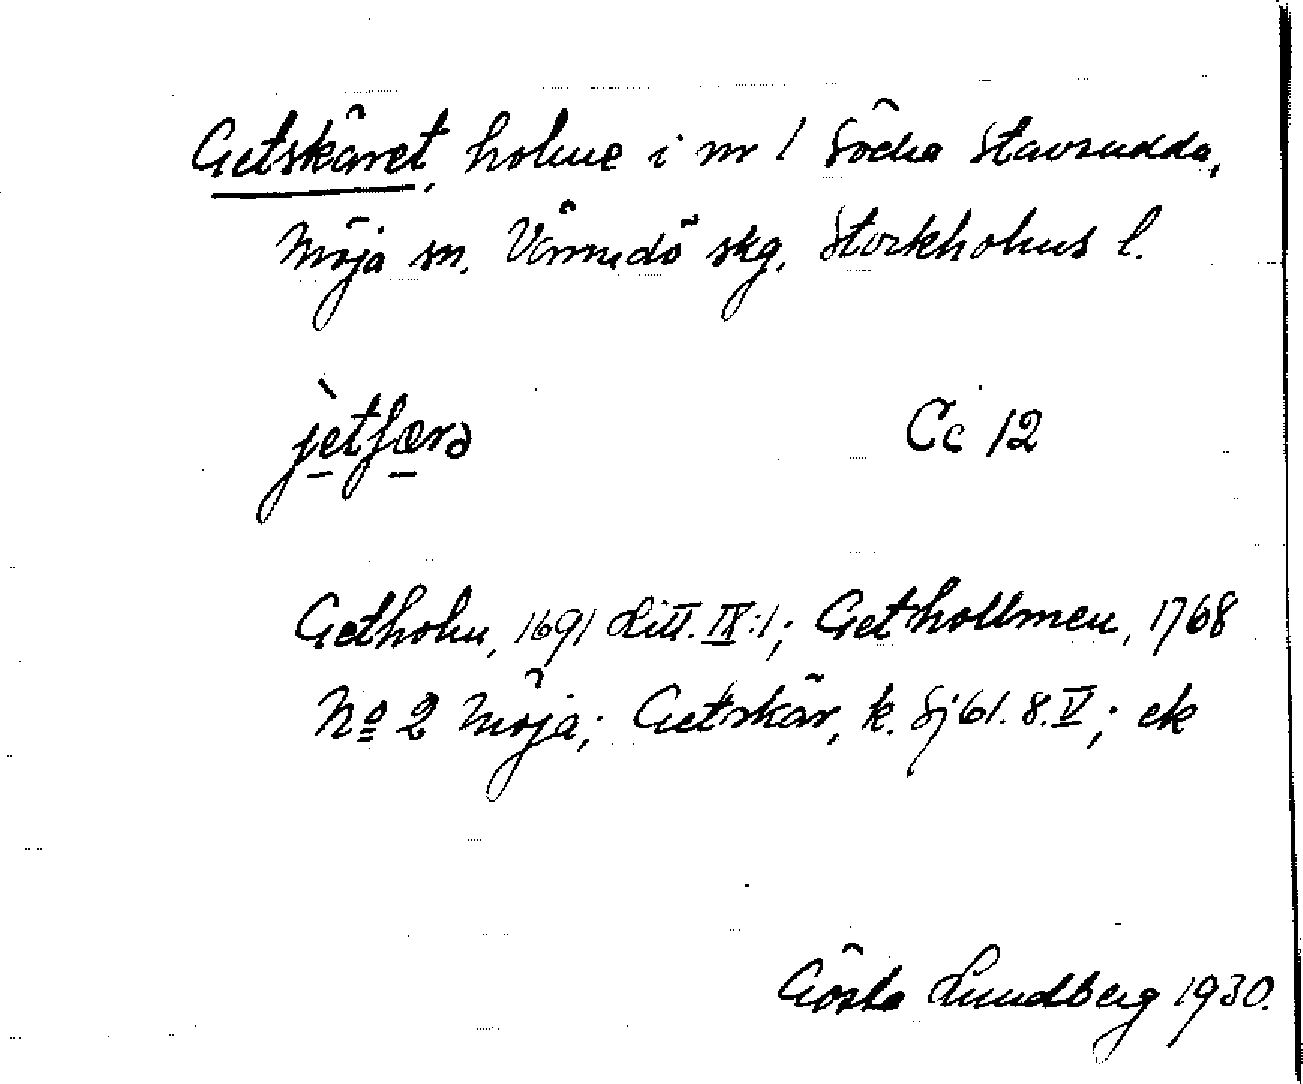 Getskäret, holme i nr 1 Södra Stavsudda,
Möja sn. Värmdö skg. Stockholms l.
jètʃærə Cc 12
Getholm, 1691 Litt. IX:1; Gethollmen, 1768
No 2 Möja; Getskär, k. Sj 61. 8. V; ek
Gösta Lundberg 1930.